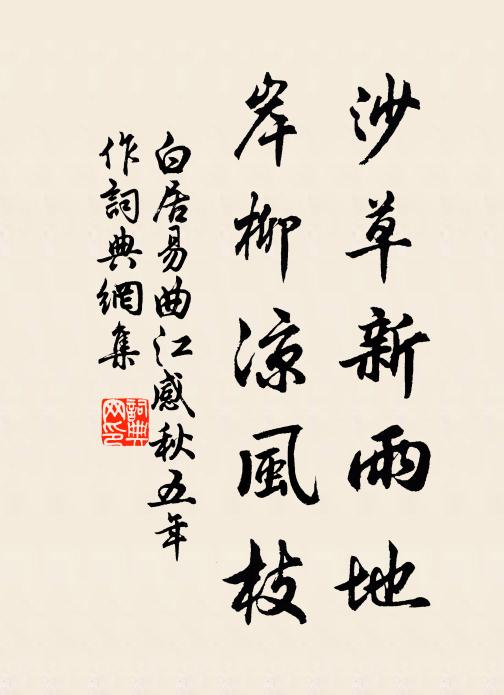 沙草新雨地
岸柳涼風枝
白居易曲江感秋五年
作詞典網集
詞典網印